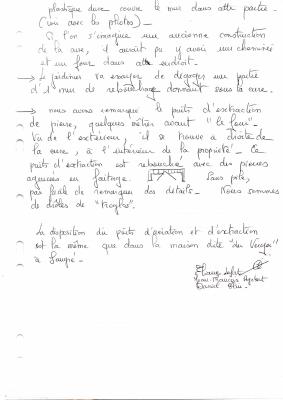 plastique dure couvre le mur dans cette partie.
(voir avec les photos).
Si l'on s'imagine une ancienne construction
de la cure, il aurait pu y avoir une cheminée
et un four dans cet endroit.
→ Le jardinier va essayer de dégager une partie
d'1 mur de rebouchage donnant sous la cure.
→ nous avons remarqué le puits d'extraction
de pierre, quelques mètres avant "le four".
Vu de l'extérieur, il se trouve à droite de
la cure, à l'intérieur de la propriété. Ce
puits d'extraction est rebouché avec des pierres
agencées en faîtage. Sans pile,
pas facile de remarquer des détails. Nous sommes
de drôles de "troglos".
La disposition du puits d'aération et d'extraction
est la même que dans la maison dite "du Verger"
à
Jean-François
Daniel